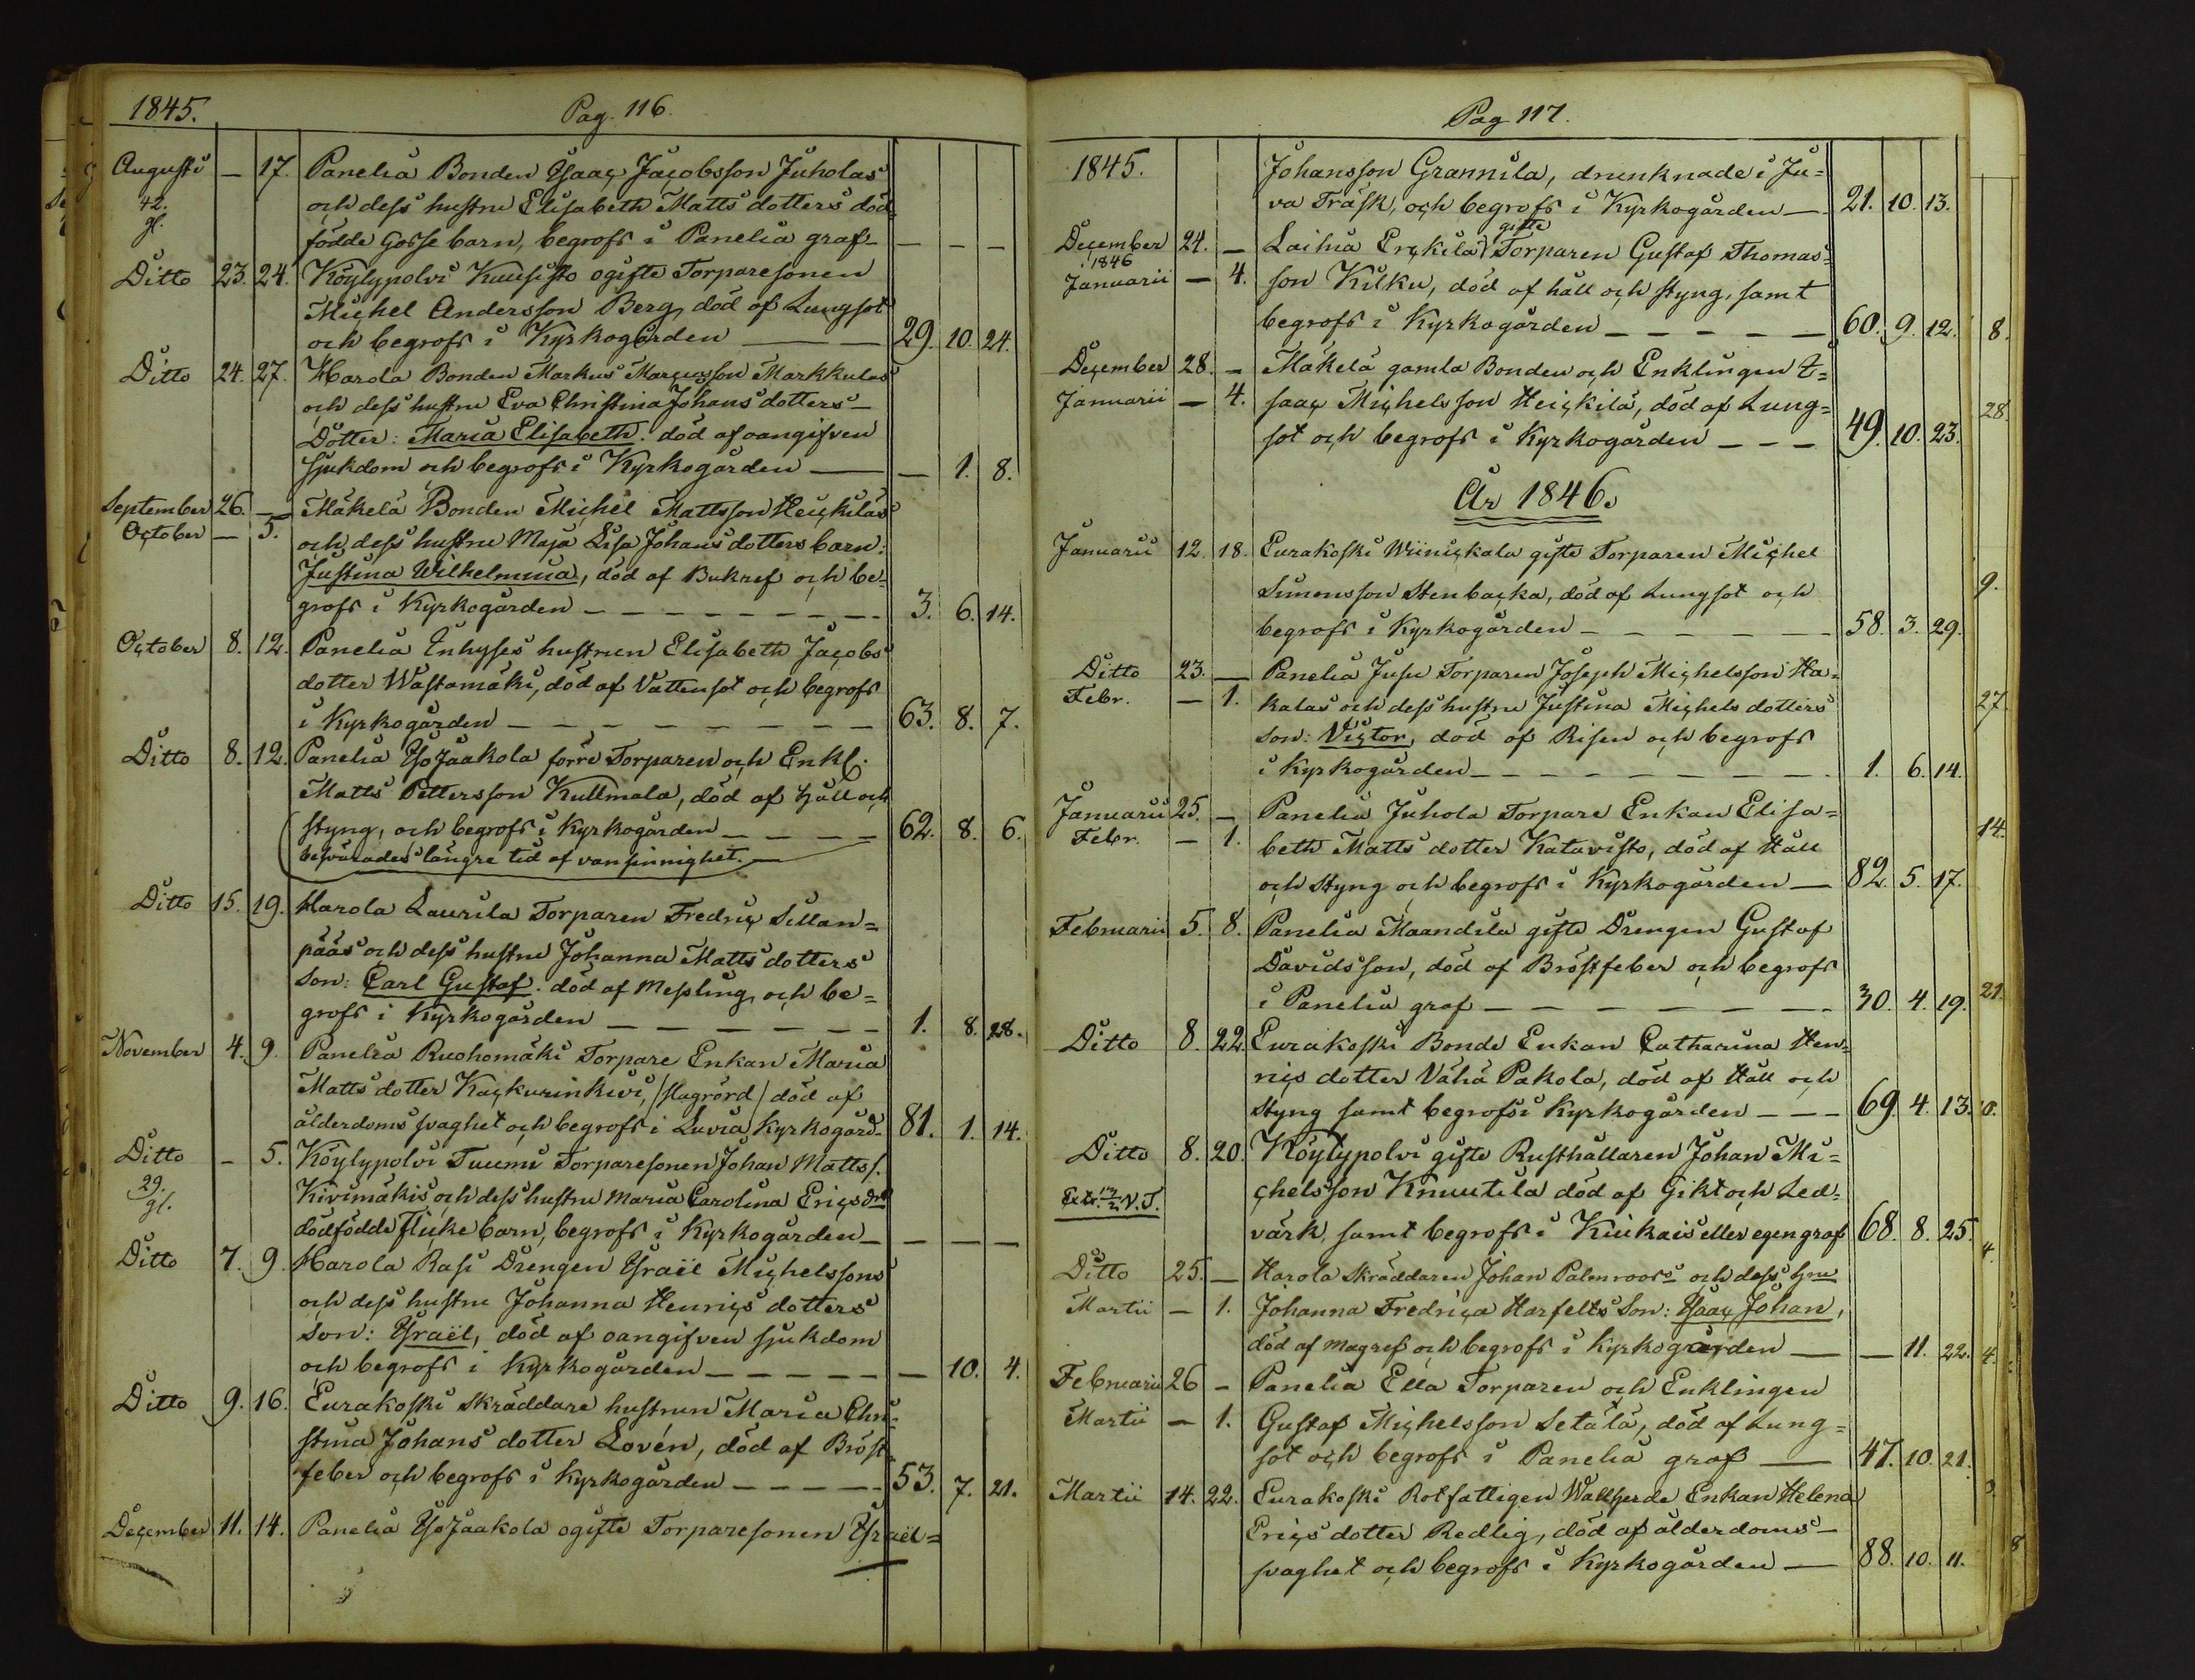 1845. Pag. 116.
Augusti — 17. Panelia Bonden Ysaac Jacobsson Juholas
42. och dess hustru Elisabeth Matts dotters död-
gl. födde Gosse barn, begrofs i Panelia graf — — — —
Ditto 23. 24. Köylypolvi Kuusisto ogifte Torparesonen
Michel Andersson Berg, död af Lungsot
och begrofs i Kyrkogården — 29. 10. 24.
Ditto 24. 27. Harola Bonden Markus Marcusson Markkulas
och dess hustru Eva Christina Johans dotters —
Dotter: Maria Elisabeth. död af oangifven
sjukdom och begrofs i Kyrkogården — — 1. 8.
September 26. — Mäkelä Bonden Michel Mattsson Heickiläs
October — 5. och dess hustru Maja Lisa Johans dotters barn:
Justina Wilhelmina, död af Bukref och be-
grofs i Kyrkogården — 3. 6. 14.
October 8. 12. Panelia Inhyses hustrun Elisabeth Jacobs
dotter Wastamäki, död af Vattusot och begrofs
i Kyrkogården — 63. 8. 7.
Ditto 8. 12. Panelia YsoJaakola förre Torparen och Enkl.
Matts Pettersson Kullmala, död af håll och
styng, och begrofs i Kyrkogården — 62. 8. 6.
besvärades längre tid af vansinnighet. —
Ditto 15. 19. Harola Laurila Torparen Fredric Sillan=
pääs och dess hustru Johanna Matts dotters
Son: Carl Gustaf. död af Messling, och be=
grofs i Kyrkogården — 1. 8. 28.
November 4. 9. Panelia Ruohomäki Torpare Enkan Maria
Matts dotter Kackurinkivi, /slagrörd/ död af
ålderdoms svaghet och begrofs i Luvia Kyrkogård — 81. 1. 14.
Ditto — 5. Köylypolvi Tuumi Torparesonen Johan Matts s.
29. Kivimäkis och dess hustru Maria Carolina Erics drs
gl. dödfödde flicke barn, begrofs i Kyrkogården — — — —
Ditto 7. 9. Harola Rasi Drengen Ysraël Michelssons
och dess hustru Johanna Henrics dotters
Son: Ysraël, död af oangifven sjukdom
och begrofs i Kyrkogården — — 10. 4.
Ditto 9. 16. Eurakoski Skräddare hustrun Maria Chri-
stina Johans dotter Lovén, död af Bröst
feber och begrofs i Kyrkogården — 53. 7. 21.
December 11. 14. Panelia YsoJaakola ogifte Torparesonen Ysraël=
Pag 117.
1845. Johansson Grannila, drunknade i Ju=
va Träsk, och begrofs i Kyrkogården — 21. 10. 13.
gifte
December 24. — Laihia Erckilä Torparen Gustaf Thomas=
1846
Januarii — 4. son Kilku, död af håll och styng, samt
begrofs i Kyrkogården — 60. 9. 12.
December 28. — Mäkelä gamla Bonden och Enklingen I=
Januarii — 4. saac Michelsson Heickilä, död af Lung=
sot och begrofs i Kyrkogården — 49. 10. 23.
År 1846.
Januarii 12. 18. Eurakoski Wiinickala gifte Torparen Michel
Simonsson Stenbacka, död af Lungsot och
begrofs i Kyrkogården — 58. 3. 29.
Ditto 23. — Panelia Jusu Torparen Joseph Michelsson Ha=
Febr. — 1. kalas och dess hustru Justina Michels dotters
Son: Victor, död af Risen och begrofs
i Kyrkogården — 1. 6. 14.
Januarii 25. — Panelia Juhola Torpare Enkan Elisa=
Febr. — 1. beth Matts dotter Katavisto, död af Håll
och Styng och begrofs i Kyrkogården — 82. 5. 17.
Februarii 5. 8. Panelia Maandila gifte Drengen Gustaf
Davidsson, död af Bröstfeber och begrofs
i Panelia graf — 30. 4. 19.
Ditto 8. 22. Eurakoski Bonde Enkan Catharina Hen=
rics dotter Vähä Pakola, död af Håll och
Styng samt begrofs i Kyrkogården — 69. 4. 13.
Ditto 8. 20. Köylypolvi gifte Rusthållaren Johan Mi=
chelsson Knuutila död af Gikt och Led=
värk, samt begrofs i Kiukais eller egen graf 68. 8. 25.
Ditto 25. — Harola Skräddaren Johan Palmroos's och dess hru
Martii — 1. Johanna Fredrica Harfelts Son: Ysaac Johan,
död af Magref och begrofs i Kyrkogården — — 11. 22.
Februarii 26 — Panelia Ella Torparen och Enklingen
Martii — 1. Gustaf Michelsson Setälä, död af Lung=
sot och begrofs i Panelia graf — 47. 10. 21.
Martii 14. 22. Eurakoski Rotfattigen Enkan Helena
Erics dotter Redlig, död af ålderdoms —
svaghet och begrofs i Kyrkogården — 88. 10. 11.